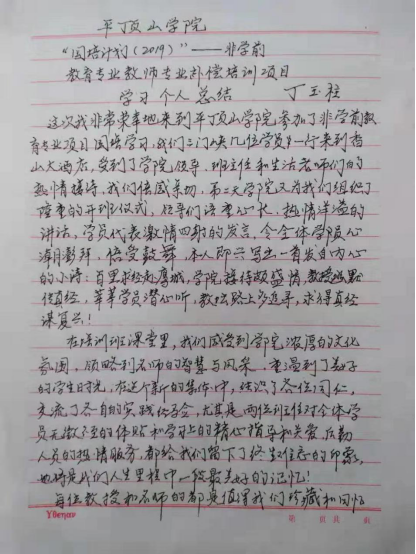 平顶山学院
“国培计划(2019)”——非学前
教育专业教师专业补偿培训项目
学习个人总结 丁玉
这次我非常荣幸地来到平顶山学院参加了非学前教
育专业项目国培学习,我们三门峡几位学员一行来到香
山大酒店,受到了学院领导、班主任和生活老师们的
热情接待,我们倍感亲切,第二天学院又为我们组织了
隆重的开班仪式,领导们语重心长、热情洋溢的
讲话,学员代表激情四射的发言,令全体学员心
潮澎湃,倍受鼓舞,本人即兴写出一首发自内心
的小诗:百里求经赴鹰城,学院接待颇盛情,教授
传真经,莘莘学员潜心听,教坛路上多追寻,求得真经
谋复兴!
在培训班课堂里,我们感受到学院浓厚的文化
氛围,领略到名师的智慧与风采,重温到了美好
的学生时光,在这个新的集体中,结识了各位同仁,
交流了各自的实践体会,尤其是两位班主任对全体学
员无微不至的体贴和学习上的精心指导和关爱,后勤
人员的热情服务,都给我们留下了终生难忘的印象,
也将是我们人生里程中一段最美好的记忆!
每位教授和名师的都是值得我们珍藏和回忆
第 页 共 页